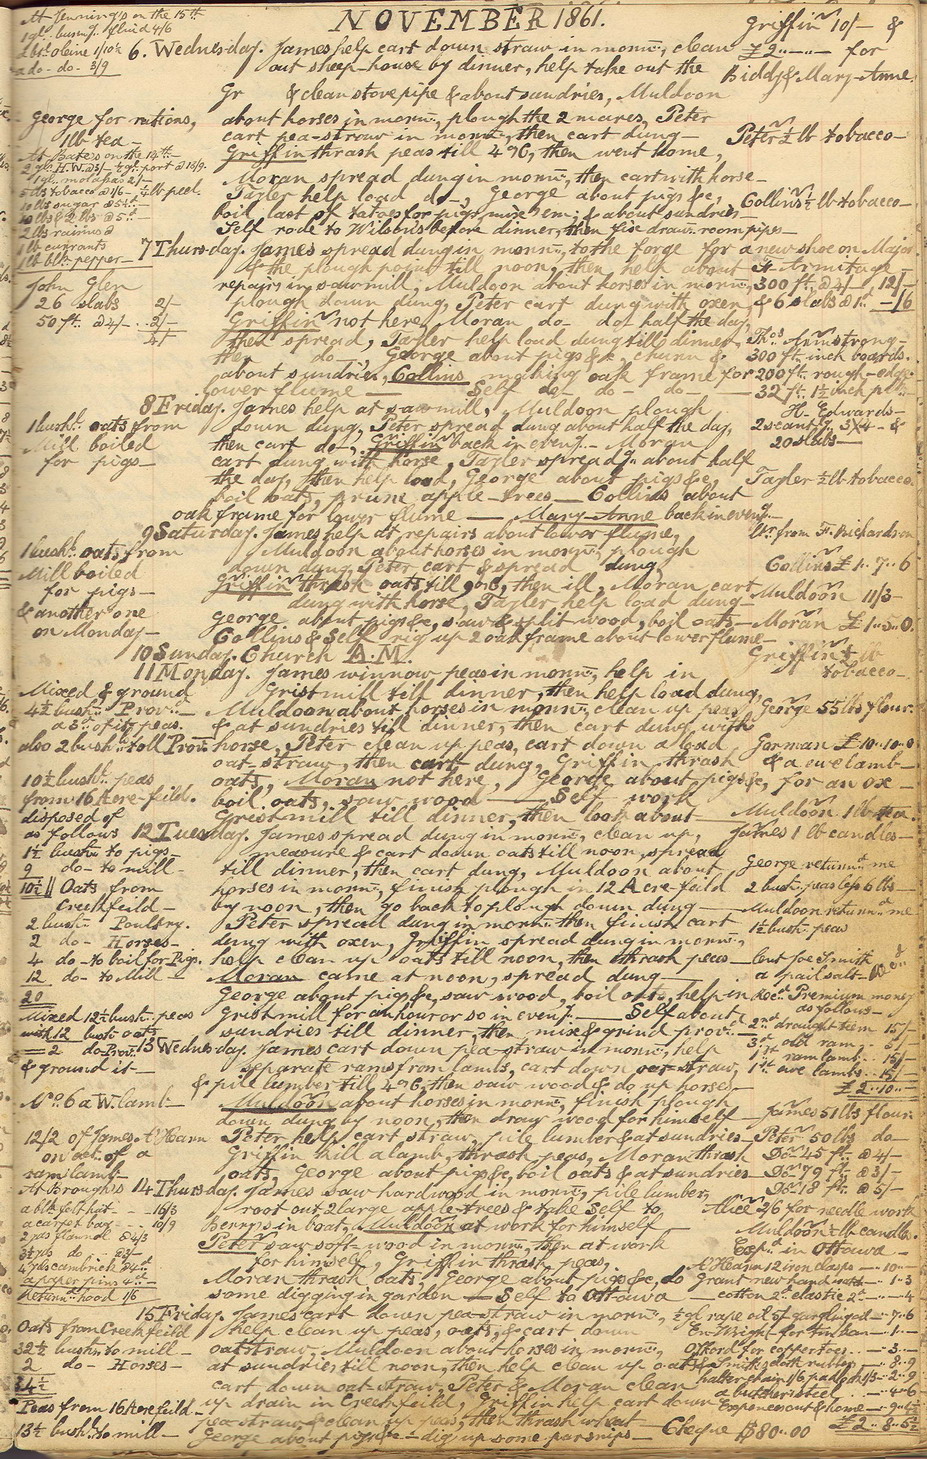 NOVEMBER 1861.
At Jenning's on the 15th
1 gl. burng. fluid 4/6
a do- do- 3/9
George for rations,
1 lb tea-
At Bates on the 14th-
5 lbs tobacco @1/6 - 1/4 lb peel
10 lbs sugar @5d-
2 lbs raisins @
1 lb currants
1 lb blk. pepper-
John Glen
26 slabs 2/-
50 ft. @4/- 2/-
4/-
6. Wednesday. James help cart down straw in morng., clean
out sheep-house by dinner, help take out the
Gr & clean stove pipe & about sundries, Muldoon
about horses in morng., plough the 2 mares, Peter
cart pea-straw in morng., then cart dung-
Griffin thrash peas till 4 oC, then went home,
Moran spread dung in morng., then cart with horse-
Tayler help load do-, George about pigs &c,
boil last of tatoes for pigs, mixe 'em, & about sundries-
Self rode to Wilson's before dinner, then fix draw.-room pipes-
Griffin 10/- & 
£2..-..- for
Biddy & Mary-Anne
Peter 1/2 lb tobacco-
Collins 1/2 lb tobacco-
7 Thursday. James spread dung in morng., to the forge for a new shoe on Major
& the plough point till noon, then help about
repairs in sawmill, Muldoon about horses in morng.,
plough down dung, Peter cart dung with oxen
Griffin not here, Moran do- do- half the day,
then spread, Tayler help load dung till dinner,
then do-, George about pigs &c, churn &
about sundries, Collins making oak frame for
lower flume - Self do- do- do-
Ft. Armitage
300 ft. @4/- 12/-
& 6 slabs @1d -/6
Thos. Armstrong-
300 ft. inch boards.
200 ft. rough-edge
32 ft. 1 1/2 inch plk.
1 bushl. oats from
Mill boiled
for pigs-
8 Friday. James help at sawmill, Muldoon plough
down dung, Peter spread dung about half the day,
then cart do-, Griffin back in eveng.- Moran
cart dung with horse, Tayler spread g. about half
the day, then help load, George about pigs &c,
boil oats, prune apple-trees- Collins about
oak frame for lower flume - Mary-Anne back in eveng.-
H. Edwards-
2 scantlg. 3x4 - &
20 slabs-
Tayler 1/2 lb tobacco-
1 bushl. oats from
Mill boiled
for pigs-
& another one
on Monday-
9 Saturday. James help at repairs about lower flume,
Muldoon about horses in morng., plough
down dung, Peter cart & spread dung
Griffin thrash oats till 9 oC, then ill, Moran cart
dung with horse, Tayler help load dung-
George about pigs &c, saw & split wood, boil oats-
Collins & Self rig up 2 oak frame about lower flume-
Ltr. from F. Richardson
Collins £1..7..6
Muldoon 11/3-
Moran £1..5..0.
10 Sunday. Church A.M.
Griffin 1/2 lb
tobacco-
Mixed & ground
4 1/2 bush. Prov.-
a 3d. of it peas.
also 2 bush. toll Prov.
10 1/2 bush. peas
from 16 Acre-feild.
disposed of
as follows
1 1/2 bush. to pigs
9 do- to mill-
10 1/2
11 Monday. James winnow peas in morng., help in
Gristmill till dinner, then help load dung,
Muldoon about horses in morng., clean up peas,
& at sundries till dinner, then cart dung with
horse, Peter clean up peas, cart down a load
oat straw, then cart dung, Griffin thrash
oats, Moran not here, George about pigs &c,
boil oats, saw wood - Self work
Gristmill till dinner, then look about-
George 55 lbs flour.
Gorman £10..10..0
& a ewe lamb-
for an ox-
Muldoon 1 lb tea.
Oats from
Creekfeild-
2 bush. Poultry.
2 do- Horses-
4 do- to boil for Pigs.
12 do- to Mill-
20
12 Tuesday. James spread dung in morng., clean up,
measure & cart down oats till noon, spread
till dinner, then cart dung, Muldoon about
horses in morng., finish plough in 12 Acre feild
by noon, then go back to plough down dung-
Peter spread dung in morng. then finish cart
dung with oxen, Griffin spread dung in morng.,
help clean up oats till noon, then thrash peas-
Moran came at noon, spread dung-
George about pigs &c, saw wood, boil oats, help in
Gristmill for an hour or so in eveng.- Self about
sundries till dinner, then mix & grind prov.-
James 1 lb candles-
George returnd. me
2 bush. peas less 6 lbs-
Muldoon returnd. me
1 1/2 bush. peas
Lent Joe Smith
a pail salt-
Recd. Premium money
as follows-
2nd draught team 15/-
3d. old ram. 5/-
1st ram lamb.- 15/-
1st ewe lambs. 15/-
£2..10..=
Mixed 12 1/2 bush. peas
with 12 bush. oats
=2 do Prov.
& ground it-
No. 6 a W. lamb-
12/2 of James A'Hearn
on act. of a
ram lamb-
13 Wednesday. James cart down pea-straw in morng., help
separate rams from lambs, cart down oat straw,
& pile lumber till 4 oC, then saw wood & do up horses-
Muldoon about horses in morng., finish plough
down dung by noon, then draw wood for himself-
Peter help cart straw, pile lumber & at sundries-
Griffin kill a lamb, thrash peas, Moran thrash
oats, George about pigs &c, boil oats & at sundries-
James 51 lbs flour
Peter 50 lbs do-
Do- 45 ft. @4/-
Do- 79 ft. @3/-
Do- 18 ft. @5/-
At Brough's
a blk felt hat - - 16/3
a carpet bag - - - 10/9
2 yds flannel @4/3
3 1/2 yds do-
4 yds cambrick @
a paper pins 4d-
Returnd. hood 1/6
14 Thursday. James saw hardwood in morng., pile lumber,
root out 2 large apple-trees & take Self to
Berry's in boat, Muldoon at work for himself
Peter saw soft-wood in morng., then at work
for himself, Griffin thrash peas,
Moran thrash oats, George about pigs &c, do
some digging in garden - Self to Ottawa-
Alice 2/6 for needle work
Muldoon 1 lb candles.
Expd. in Ottawa-
A'Hearn 12 iron clasps - 10-
Grant new hand - 1-3
cotton 2d. elastic 2d.- - 4
Oats from Creekfeild
32 1/2 bush. to mill-
2 do- Horses-
34 1/2
Peas from 16 Acre feild-
13 1/2 bush. to mill-
15 Friday. James cart down pea-straw in morng.,
help clean up peas, oats, & cart down
oat straw, Muldoon about horses in morng.,
at sundries till noon, then help clean up oats &
cart down oat-straw, Peter & Moran clean
up drain in Creekfeild, Griffin help cart down
pea-straw & clean up peas, then thrash wheat-
George about pigs &c- dig up some parsnips-
Cheque $80..00
Enright for
Offord for coppertoes - 3-
halter chain 1/6 padlock 1/3 - 2-9
a butcher steel - 4-6
Expences out & home-
£2..8..5 1/2